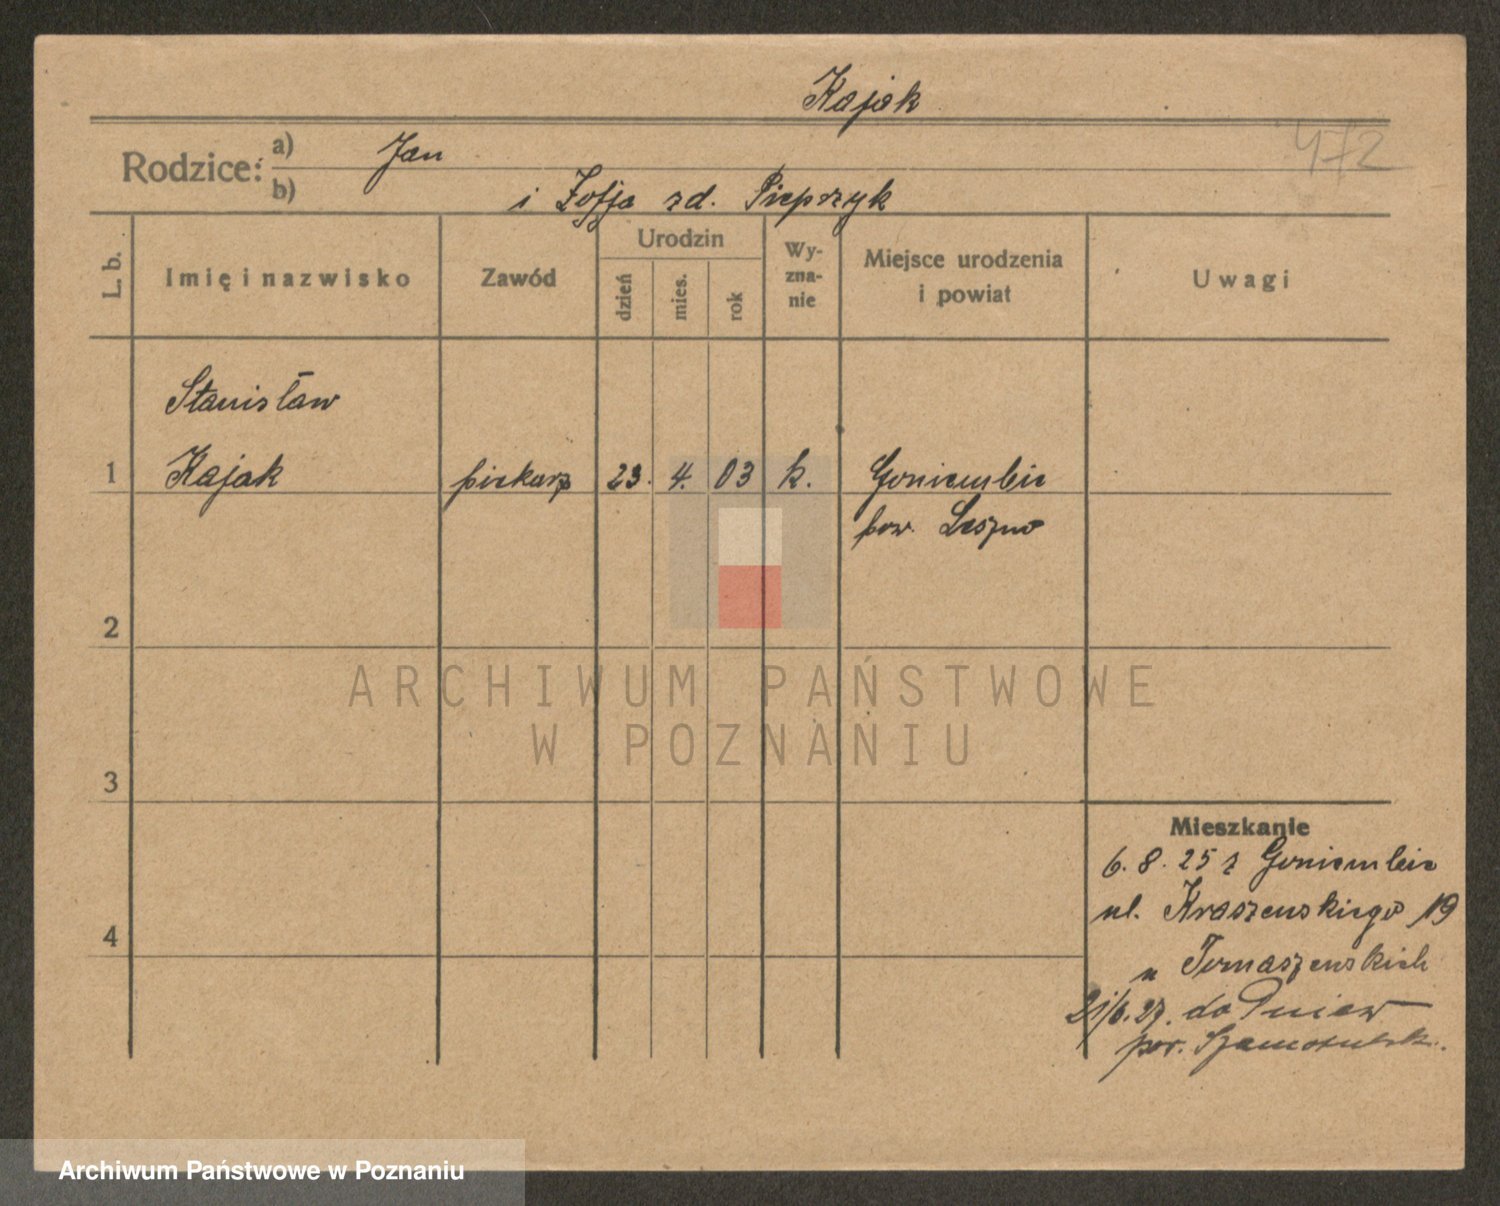 Kajak
472
Rodzice: a) Jan
b) i Zofja zd. Pieprzyk
L. b.
Imię i nazwisko
Zawód
Urodzin
dzień
mies.
rok
Wy-
zna-
nie
Miejsce urodzenia
i powiat
Uwagi
Stanisław
1 Kajak piekarz 23. 4. 03 k. Goniembic
pow. Leszno
2
3
4
Mieszkanie
6. 8. 25 z Goniembic
ul. Kraszewskiego 19
u Tomaszewskich
21/6. 27. do Pniew
pow. Szamotulsk.
ARCHIWUM PAŃSTWOWE
W POZNANIU
Archiwum Państwowe w Poznaniu